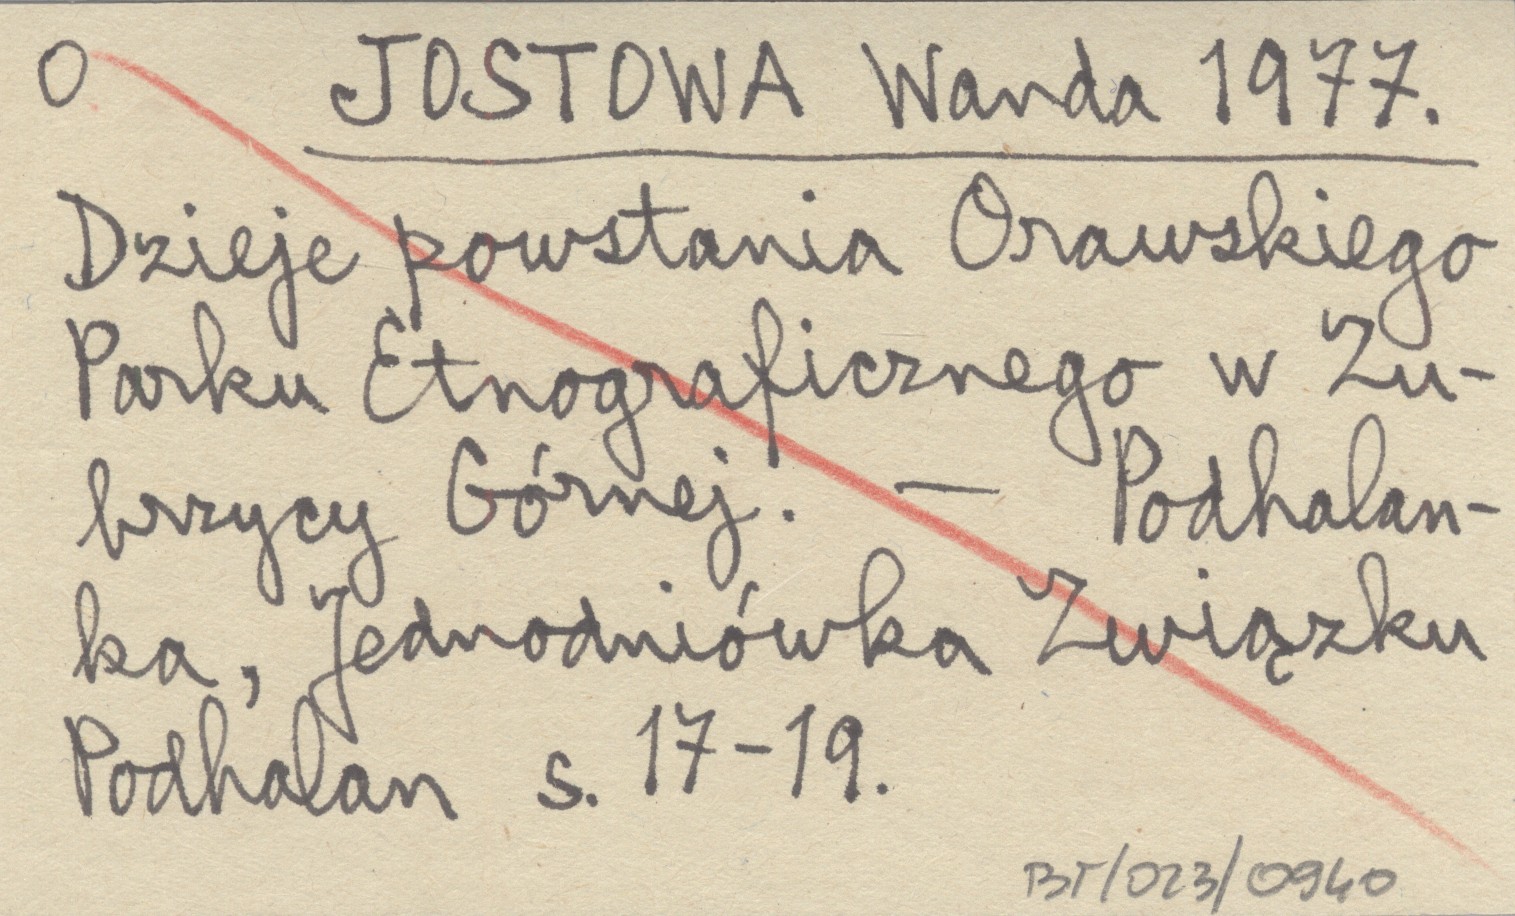 O JOSTOWA Wanda 1977.
Dzieje powstania Orawskiego
Parku Etnograficznego w Zu-
brzycy Górnej. — Podhalan-
ka, Jednodniówka Związku
Podhalan s. 17-19.
BT/023/0940